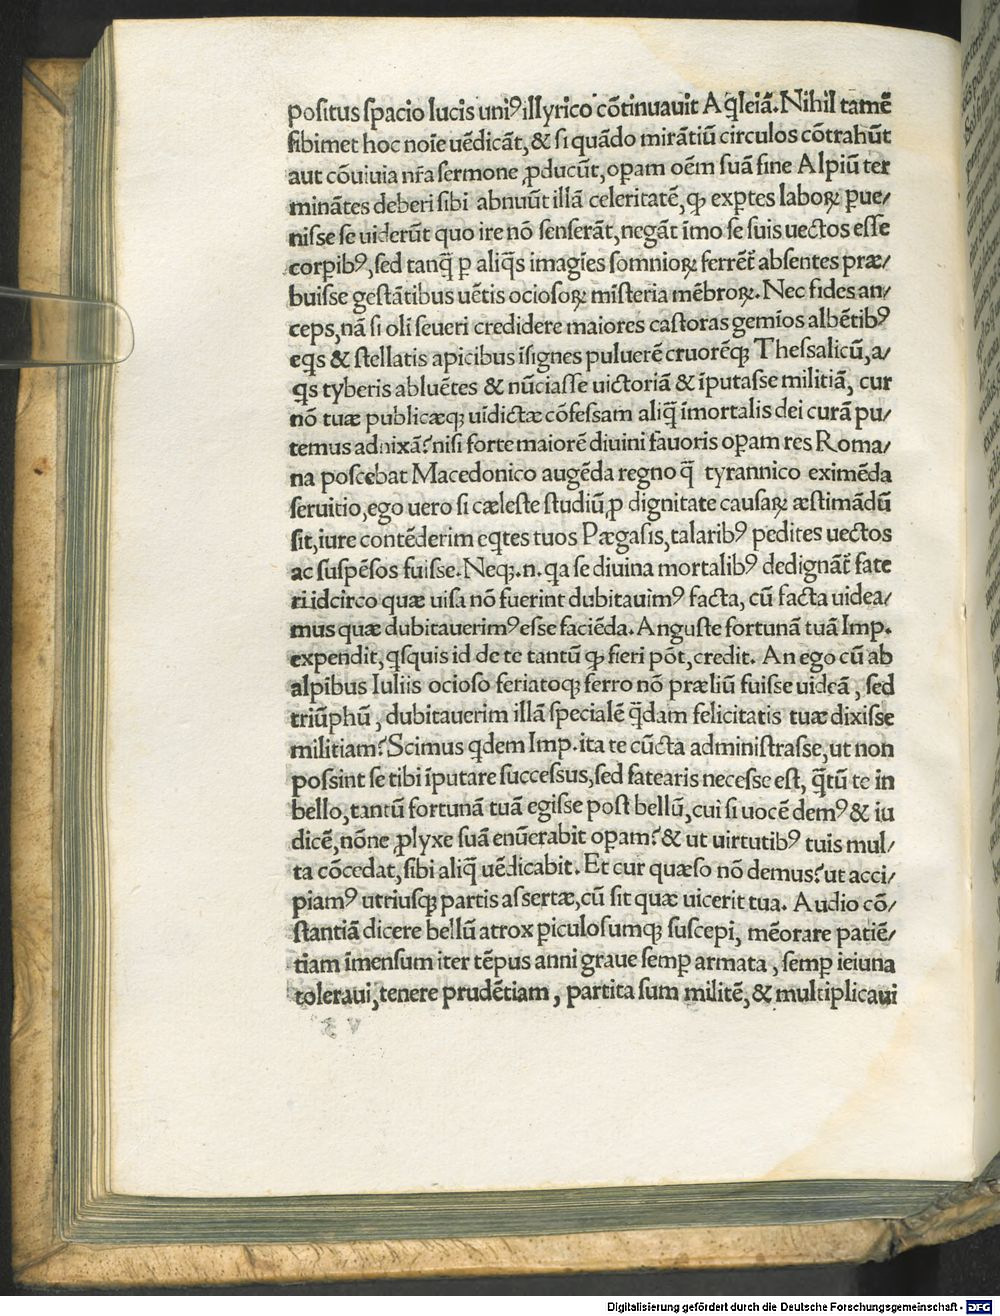 positus ſpacio lucis uniꝰ illyrico cōtinuauit Aq̄leiā. Nihil tamē
ſibimet hoc noīe uēdicāt, & ſi quādo mirātiū circulos cōtrahūt
aut cōuiuia nr̄a ſermone ꝓducūt, opam oēm ſuā fine Alpiū ter
minātes deberi ſibi abnuūt illā celeritatē, ꝙ exꝑtes laboꝝ ꝑue/
niſſe ſe uiderūt quo ire nō ſenſerāt, negāt īmo ſe ſuis uectos eſſe
corꝑibꝰ, ſed tanq̄ ꝑ aliq̄s imagīes ſomnioꝝ ferrēt̄ abſentes præ/
buiſſe geſtātibus uētis ocioſoꝝ miſteria mēbroꝝ. Nec fides an/
ceps, nā ſi olī ſeueri credidere maiores caſtoras gemīos albētibꝰ
eqs & ſtellatis apicibus īſignes puluerē cruorēqꝫ Theſſalicū, a/
qs tyberis abluētes & nūciaſſe uictoriā & īputaſſe militiā, cur
nō tuæ publicæqꝫ uīdictæ cōfeſſam aliq̄ īmortalis dei curā pu/
temus adnixā? niſi forte maiorē diuini fauoris opam res Roma/
na poſcebat Macedonico augēda regno q̄ tyrannico eximēda
ſeruitio, ego uero ſi cæleſte ſtudiū, ꝑ dignitate cauſaꝝ æſtimādū
ſit, iure contēderim eqtes tuos Pægaſis, talaribꝰ pedites uectos
ac ſuſpēſos fuiſſe. Neqꝫ .n. qa ſe diuina mortalibꝰ dedignāt̄ fate
ri idcirco quæ uiſa nō fuerint dubitauimꝰ facta, cū facta uidea/
mus quæ dubitauerimꝰ eſſe faciēda. Anguſte fortunā tuā Imp.
expendit, qſquis id de te tantū ꝙ fieri pōt, credit. An ego cū ab
alpibus Iuliis ocioſo feriatoqꝫ ferro nō præliū fuiſſe uideā, ſed
triūphū, dubitauerim illā ſpecialē q̄dam felicitatis tuæ dixiſſe
militiam? Scimus qdem Imp. ita te cūcta adminiſtraſſe, ut non
poſſint ſe tibi īputare ſucceſſus, ſed fatearis neceſſe eſt, q̄tū te in
bello, tantū fortunā tuā egiſſe poſt bellū, cui ſi uocē demꝰ & iu
dicē, nōne ꝓlyxe ſuā enūerabit opam? & ut uirtutibꝰ tuis mul/
ta cōcedat, ſibi aliq̄ uēdicabit. Et cur quæſo nō demus? ut acci/
piamꝰ utriuſqꝫ partis aſſertæ, cū ſit quæ uicerit tua. Audio cō/
ſtantiā dicere bellū atrox piculoſumqꝫ ſuſcepi, mēorare patiē/
tiam īmenſum iter tēpus anni graue ſemꝑ armata, ſemꝑ ieiuna
toleraui, tenere prudētiam, partita ſum militē, & multiplicaui
Digitalisierung gefördert durch die Deutsche Forschungsgemeinschaft - DFG